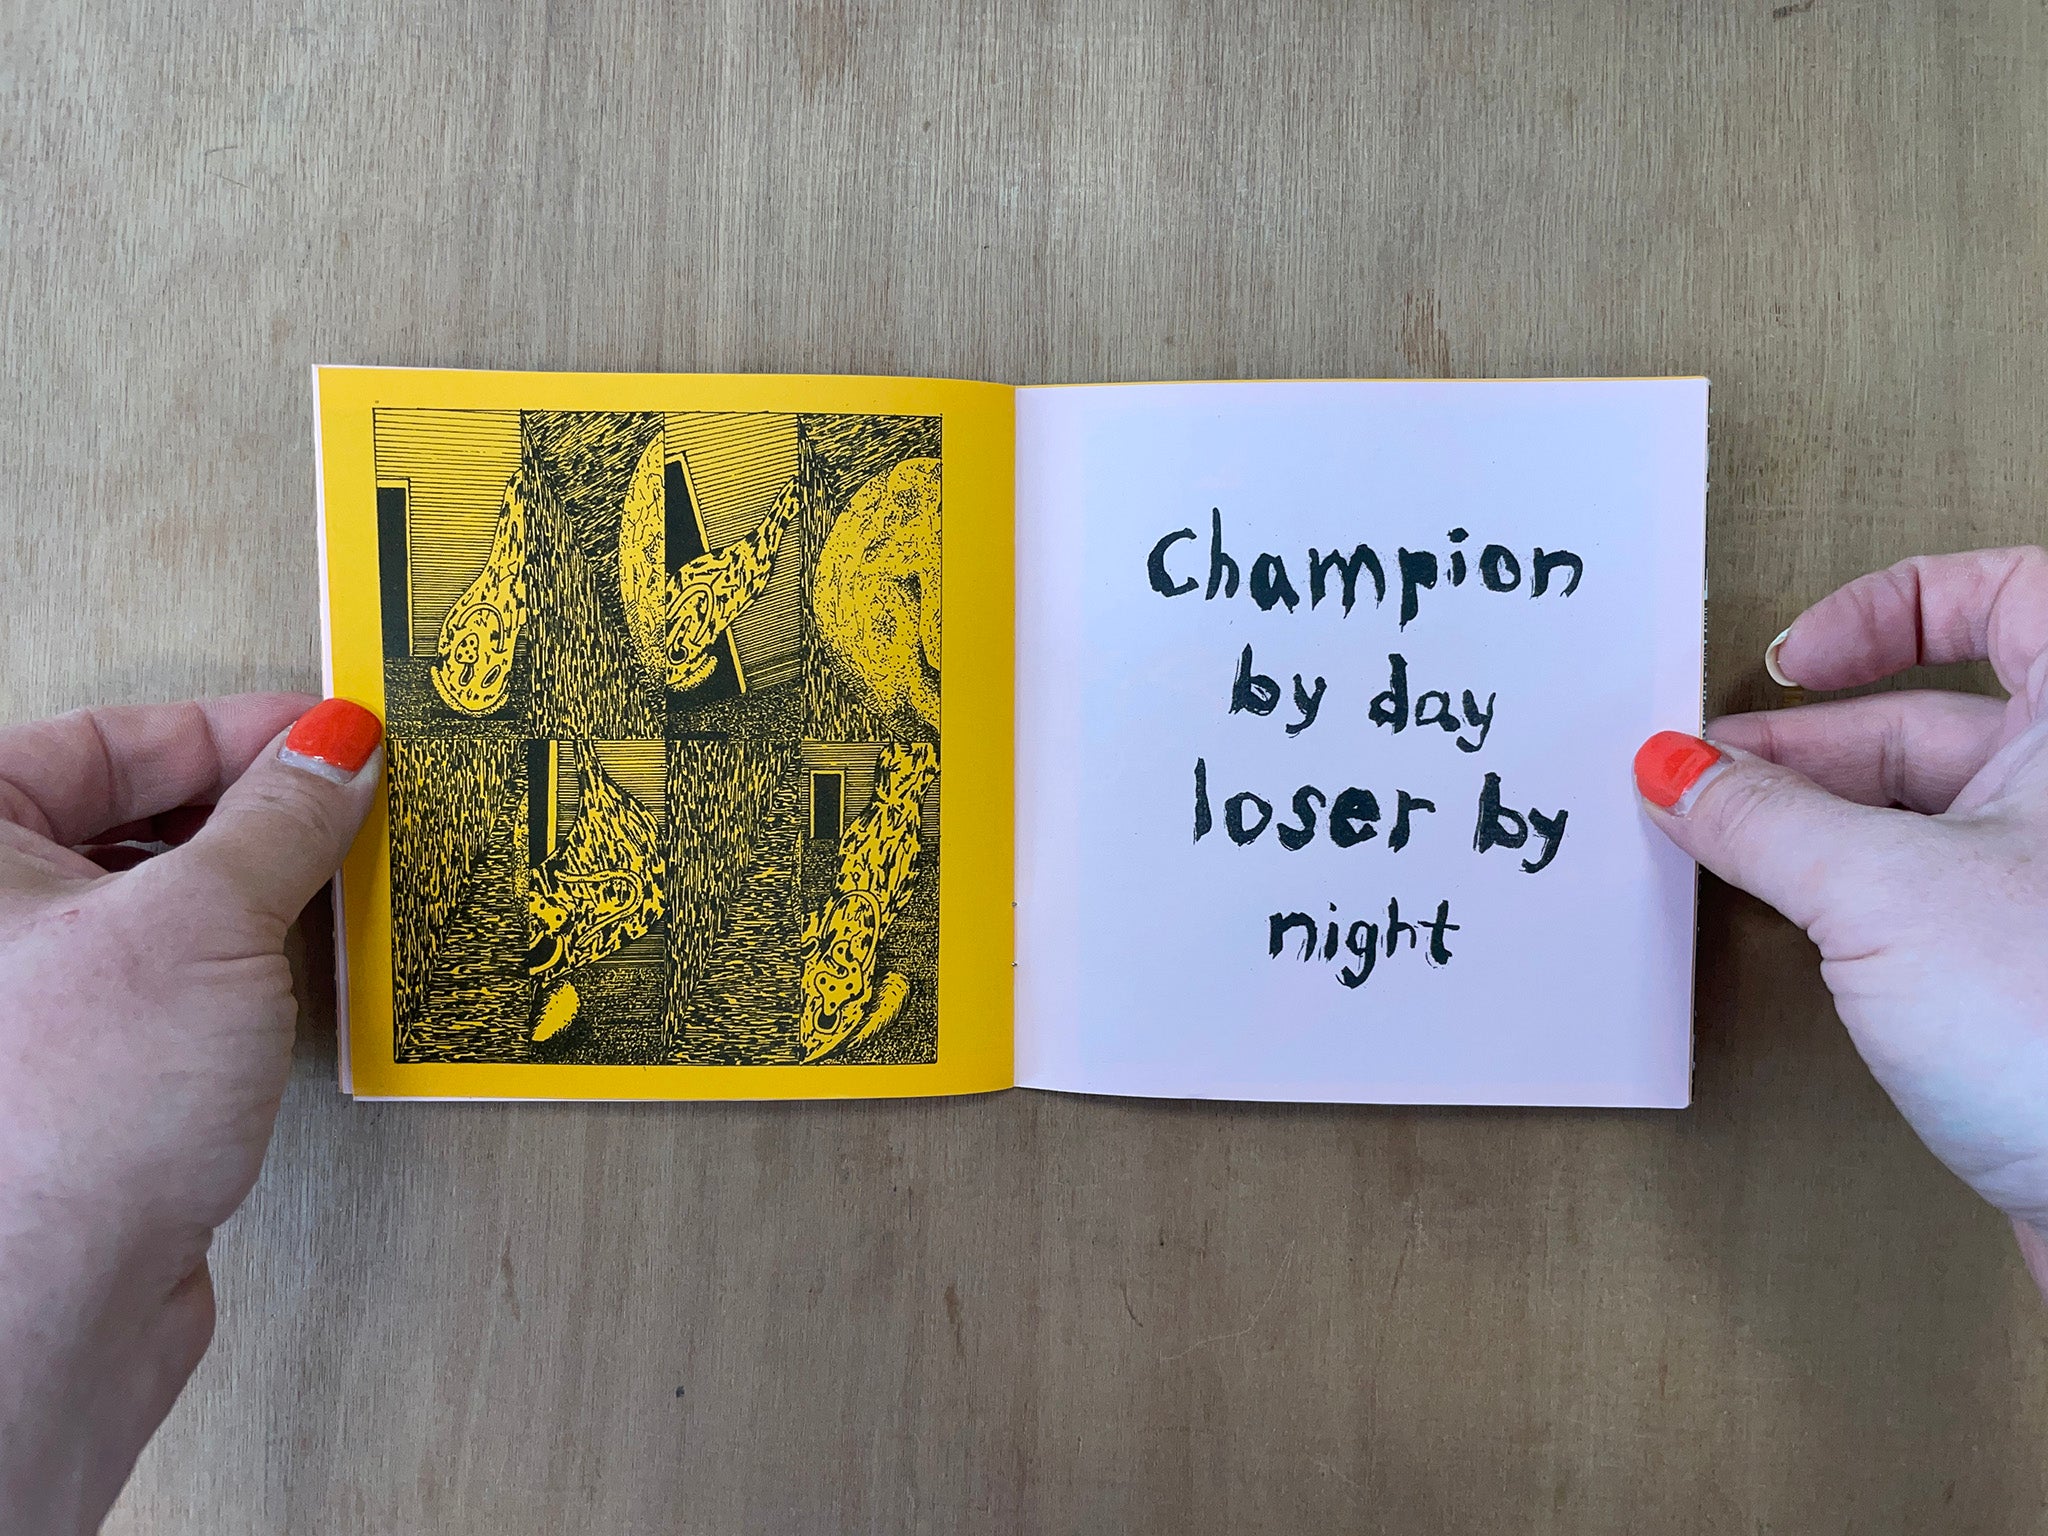 Champion
by day
loser by
night